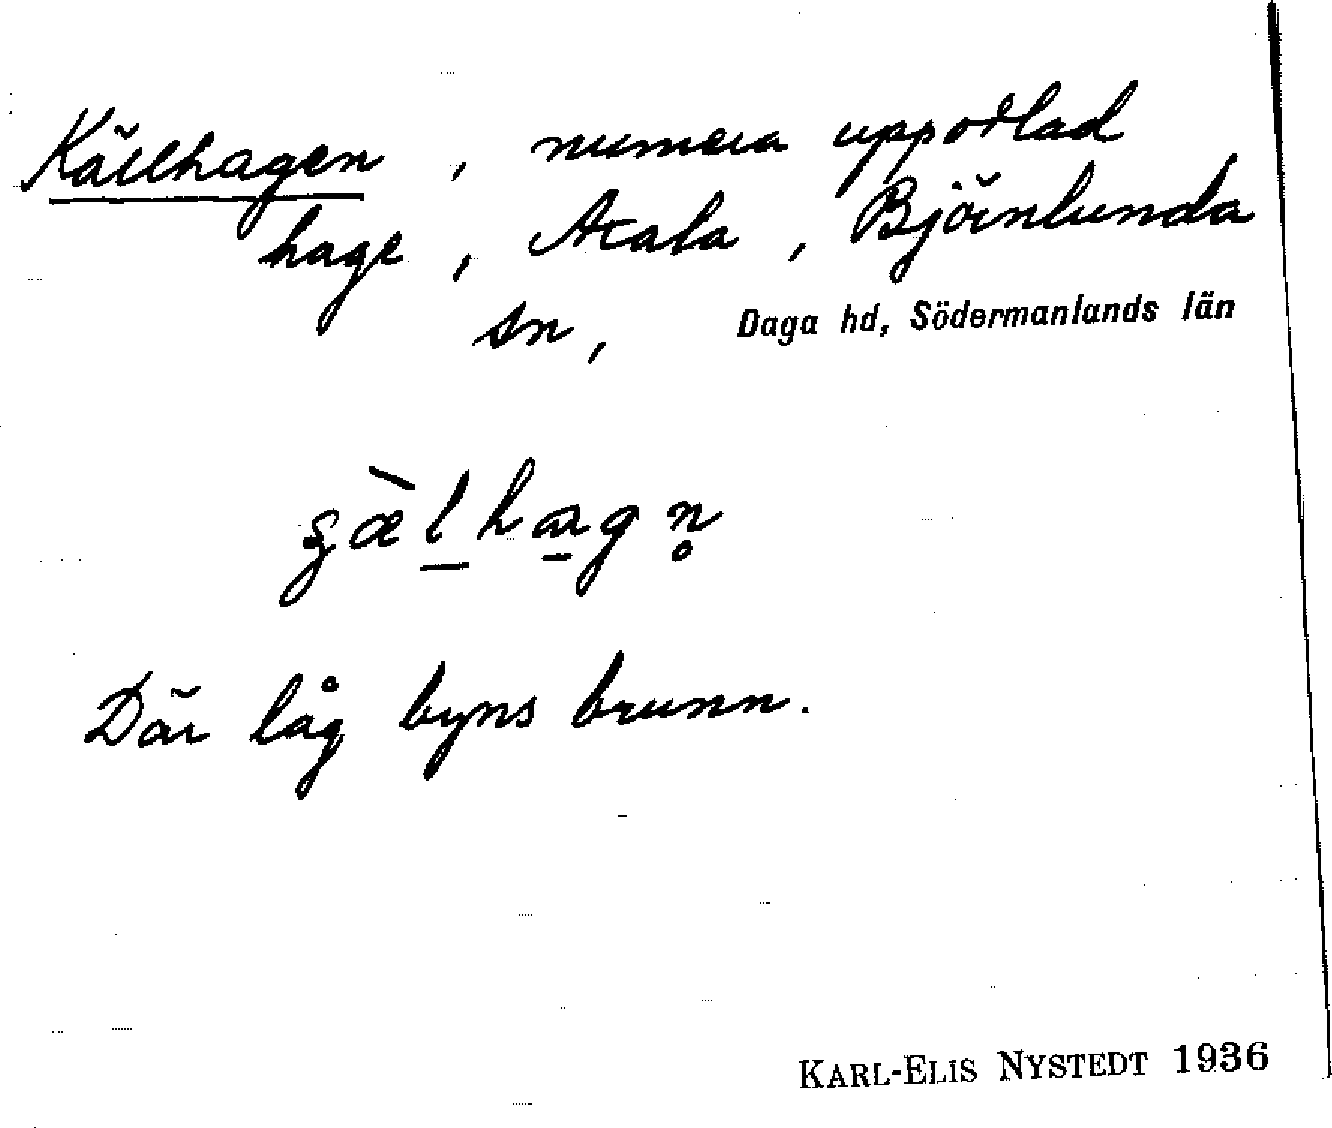 Källhagen, numera uppodlad
hage, Axala, Björnlunda
sn, Daga hd, Södermanlands län
Där låg byns brunn.
KARL-ELIS NYSTEDT 1936